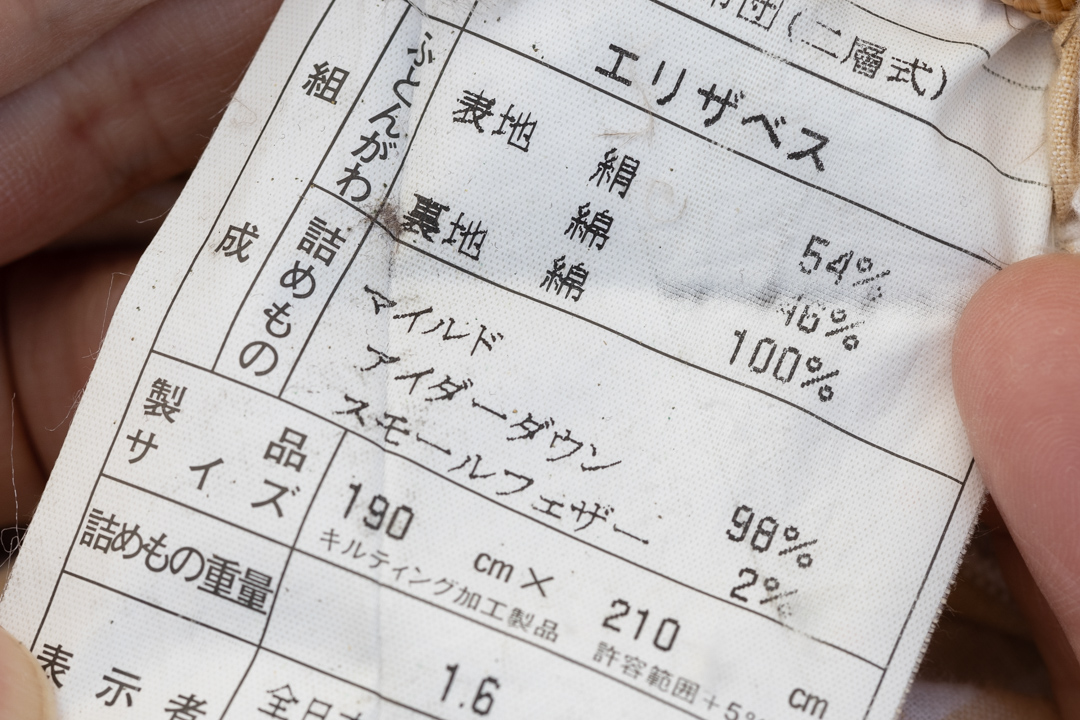 団(二層式)
組成
ふとんがわ
エリザベス
表地 絹 54%
綿 46%
裏地 綿 100%
詰めもの
マイルド
アイダーダウン 98%
スモールフェザー 2%
製品サイズ
190 cm × 210 cm
キルティング加工製品 許容範囲+5%
詰めもの重量
1.6
表示者
全日